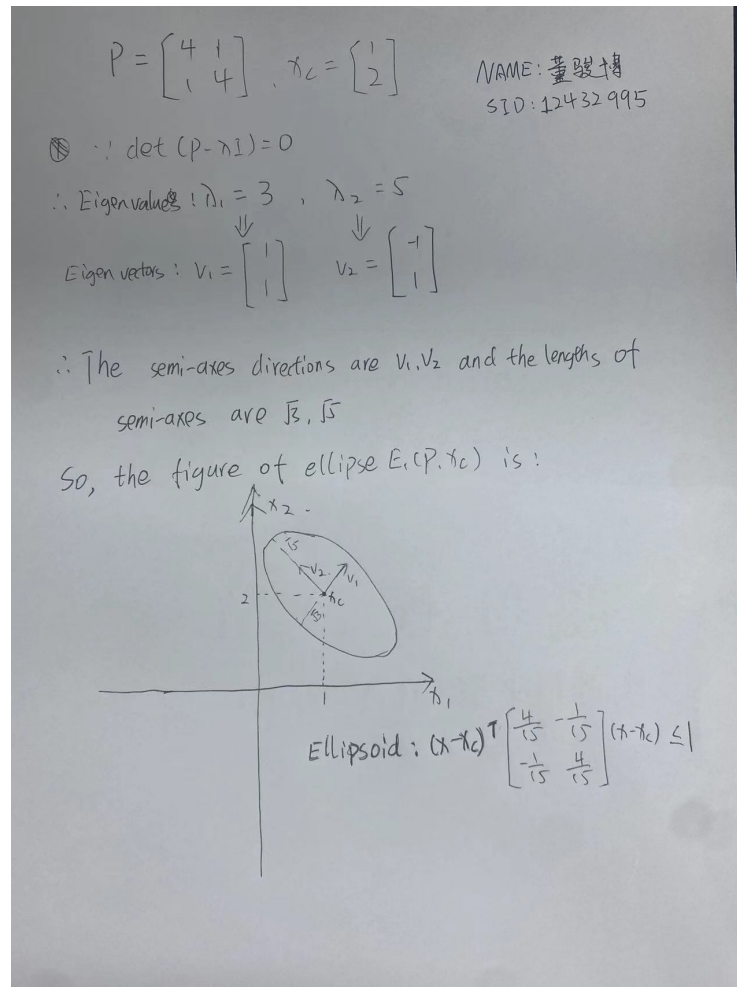 P = [4 1; 1 4], x_c = [1; 2]
NAME: 董骏博
SID: 12432995
① ∵ det (P-λI)=0
∴ Eigenvalues: λ₁ = 3, λ₂ = 5
⇓ ⇓
Eigen vectors: v₁ = [1; 1] v₂ = [-1; 1]
∴ The semi-axes directions are v₁, v₂ and the lengths of
semi-axes are √3, √5
So, the figure of ellipse E₁(P, x_c) is:
x₂
√5
v₂
v₁
2
x_c
√3
1
x₁
Ellipsoid: (x-x_c)ᵀ [4/15 -1/15; -1/15 4/15] (x-x_c) ≤ 1